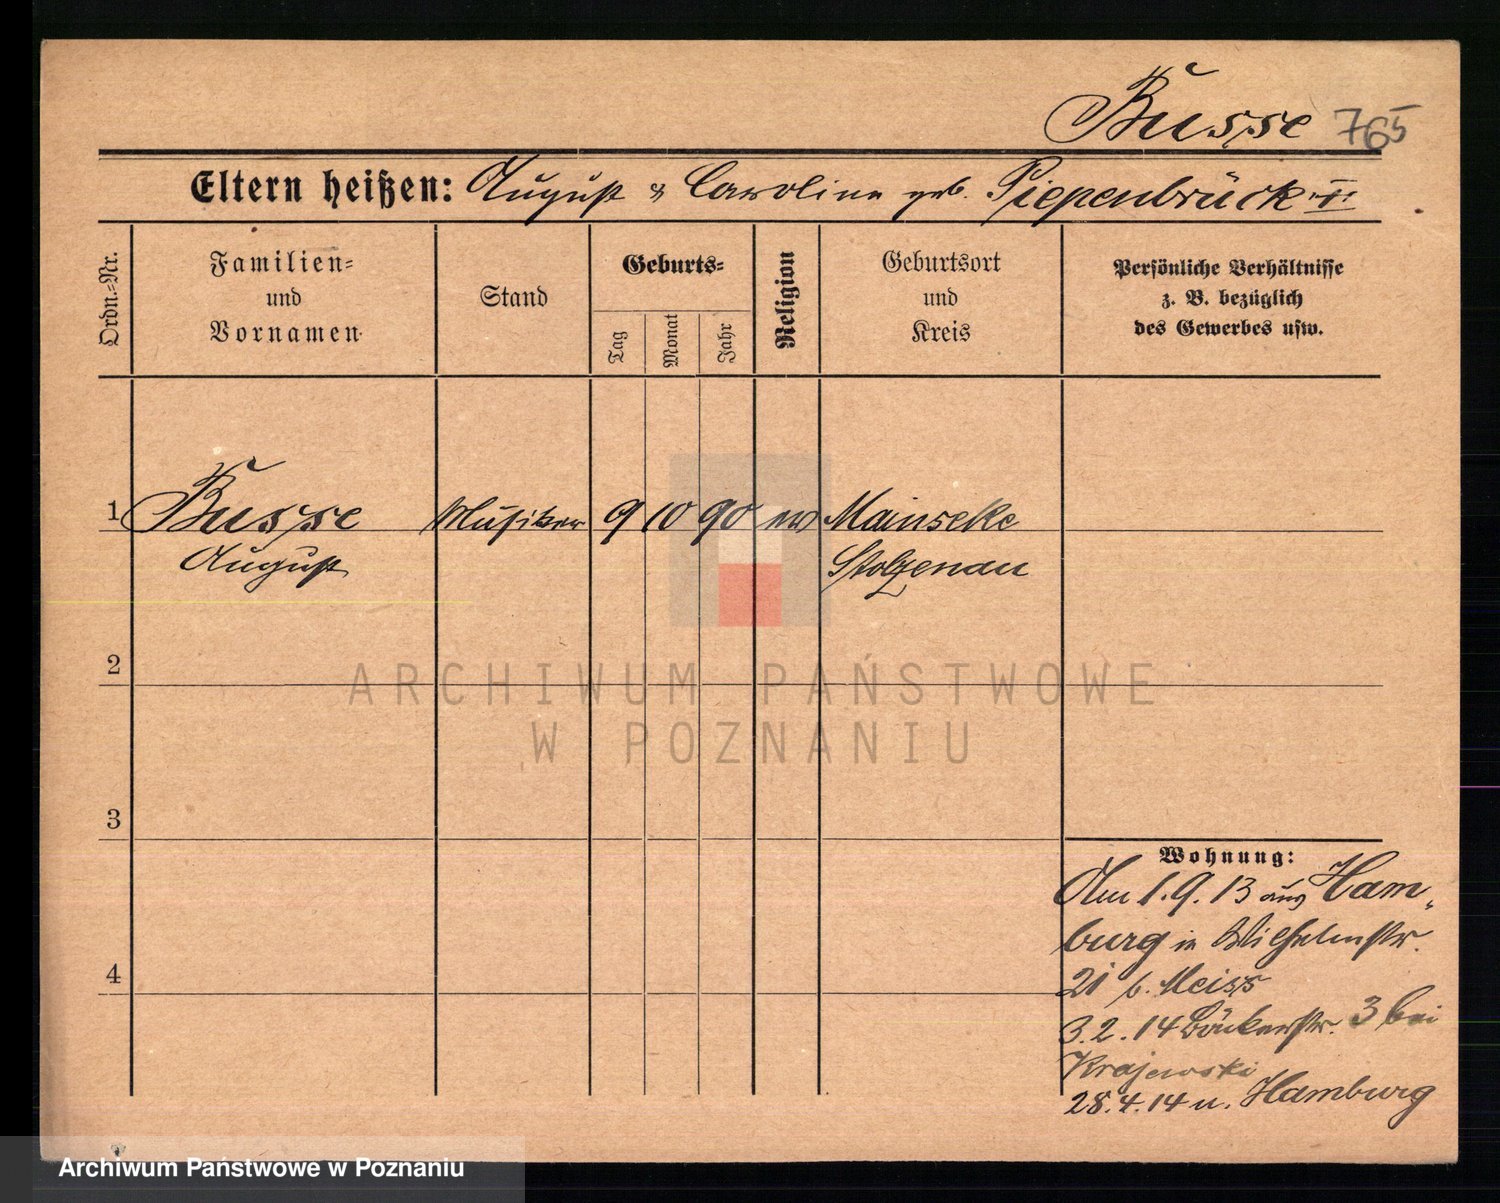 Busse 765
Eltern heißen: August & Caroline geb. Piepenbrück
Ordn.=Nr.
Familien=
und
Vornamen
Stand
Geburts=
Tag
Monat
Jahr
Religion
Geburtsort
und
Kreis
Persönliche Verhältnisse
z. B. bezüglich
des Gewerbes usw.
1 Busse Musiker 9 10 90 ev Mainseke
August Stolzenau
2
ARCHIWUM PAŃSTWOWE
W POZNANIU
3
Wohnung:
Am 1.9.13 aus Ham-
burg in Wilhelmstr.
21 b. Meiss
4
3.2.14 Bäckerstr. 3 bei
Krajewski
28.4.14 n. Hamburg
Archiwum Państwowe w Poznaniu